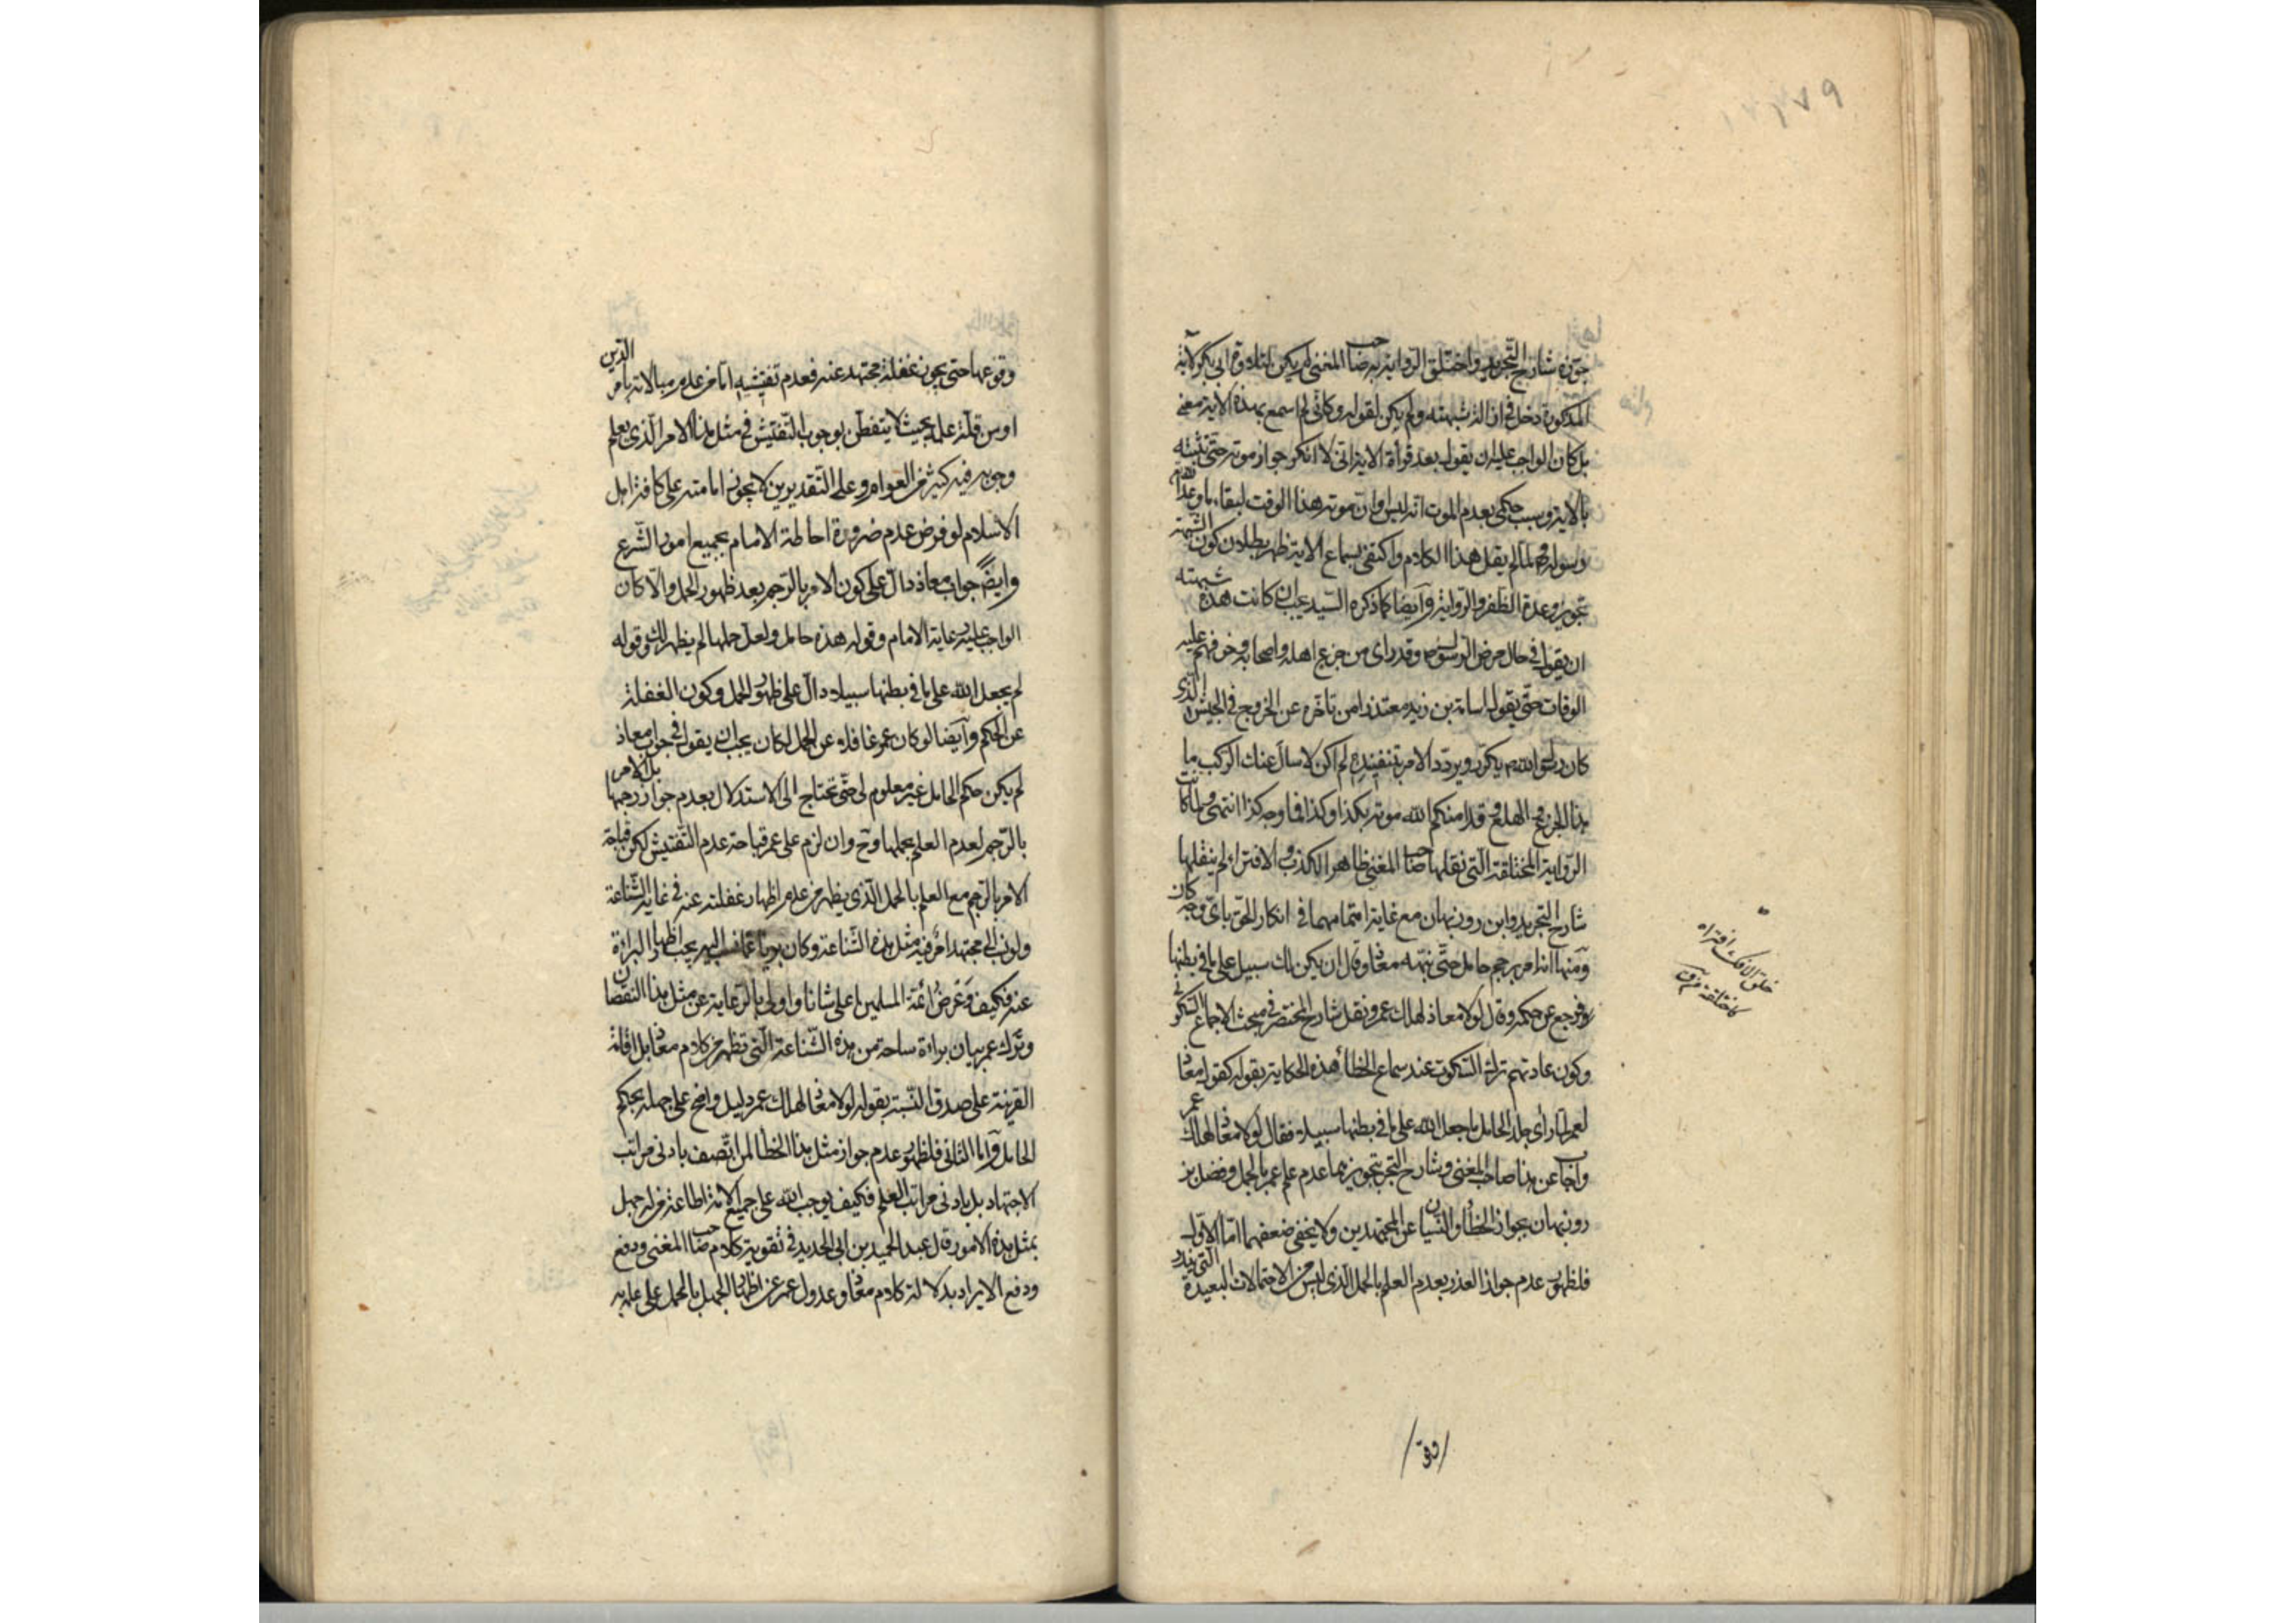 ٧٩
جوّزه شارح التجريد واختلق الرواية به صاحب المغنى لم يكن لتلاوة ابى بكر الآية
المذكورة دخل فى ازالة شبهته ولم يكن لقوله وكأنّى لم اسمع بهذه الآية معنى
بل كان الواجب عليه ان يقول بعد قرأة الآية انى لا انكر جواز موته حتى تثبته
بالآية وسبب حكمى بعدم الموت انه ليس اوان موته هذا الوقت لبقاء ما وعد اللّه
ورسوله ولمّا لم يقل هذا الكلام واكتفى بسماع الآية ظهر بطلان كون الشبهة
تجويز وعدة الظفر والرواية وآيضا كما ذكره السيد يجب ان كانت هذه شبهته
ان يقول فى حال مرض الرسول وقد رأى من جزع اهله واصحابه وخوفهم عليه
الوفات حتى يقول اسامة بن زيد معتذرا من تأخره عن الخروج فى الجيش الذى
كان رسول اللّه يكرّر ويردّد الامر بتنفيذه لم اكن لاسأل عنك الركب ما
هذا الجزع والهلع وقد امنكم اللّه موته بكذا وكذا فى وجه كذا انتهى ولما كانت
الرواية المختلقة التى نقلها صاحب المغنى ظاهر الكذب والافتراء لم ينقلها
شارح التجريد وابن روزبهان مع غاية اهتمامهما فى انكار الحق باىّ وجه كان
ومنها انه امر برجم حامل حتى نبّهه معاذ وقال ان يكن لك سبيل على ما فى بطنها
فرجع عن حكمه وقال لولا معاذ لهلك عمر ونقل شارح المختصر فى مبحث الاجماع السكوتى
وكون عادتهم ترك السكوت عند سماع الخطأ هذه الحكاية بقوله كقول معاذ
لعمر لما رأى جلد الحامل ما جعل اللّه على ما فى بطنها سبيلا فقال لولا معاذ لهلك عمر
واجاب عن هذا صاحب المغنى وشارح التجريد بتجويزهما عدم علم عمر بالحمل وفضل بن
روزبهان بجواز الخطأ والنسيان عن المجتهدين ولا يخفى ضعفهما امّا الاوّل
فلظهور عدم جواز العذر بعدم العلم بالحمل الذى ليس من الاحتمالات البعيدة التى يندر
خلق الافك افتراه
كاختلقه
وقو
وقوعها حتى يجوز غفلة مجتهد عنه فعدم تفتيشه امّا من عدم مبالاته بامر الدّين
او من قلّة علمه بحيث لا يتفطن بوجوب التفتيش فى مثل هذا الامر الّذى يعلم
وجوبه فيه كثير من العوام وعلى التقديرين لا يجوز امامته على كافة اهل
الاسلام لو فرض عدم ضرورة احاطة الامام بجميع امور الشرع
وايضاً جواب معاذ دالّ على كون الامر بالرجم بعد ظهور الحمل والّا كان
الواجب عليه رعاية الامام وقوله هذه حامل ولعلّ حملها لم يظهر لك وقوله
لم يجعل اللّه على ما فى بطنها سبيلا دالّ على ظهور الحمل وكون الغفلة
عن الحكم وآيضا لو كان عمر غافلا عن الحمل لكان يجب ان يقول فى جواب معاذ
لم يكن حكم الحامل غير معلوم لى حتى تحتاج الى الاستدلال بعدم جواز رجمها بل الامر
بالرّجم لعدم العلم بحملها وح وان لزم على عمر قباحة عدم التفتيش لكن قباحة
الامر بالرجم مع العلم بالحمل الّذى يظهر من عدم اظهار غفلته عنه فى غاية الشناعة
ولو نسب الى مجتهد امر فيه مثل هذه الشناعة وكان بريّا عمّا نسب اليه يجب اظهار البراءة
عنه فكيف وعرض ائمّة المسلمين اعلى شانا واولى بالرعاية عن مثل هذا النقصان
وترك عمر بيان براءة ساحته من هذه الشناعة الّتى تظهر من كلام معاذ بل اقامة
القرينة على صدق النسبة بقوله لولا معاذ لهلك عمر دليل واضح على جهله بحكم
الحامل وامّا الثانى فلظهور عدم جواز مثل هذا الخطأ لمن اتّصف بادنى مراتب
الاجتهاد بل بادنى مراتب العلم فكيف يوجب اللّه على جميع الامة اطاعة من له جهل
بمثل هذه الامور قال عبد الحميد بن ابى الحديد فى تقوية كلام صاحب المغنى ودفع
ودفع الايراد بدلالة كلام معاذ وعدول عمر عن اظهار الجهل بالحمل على علمه به